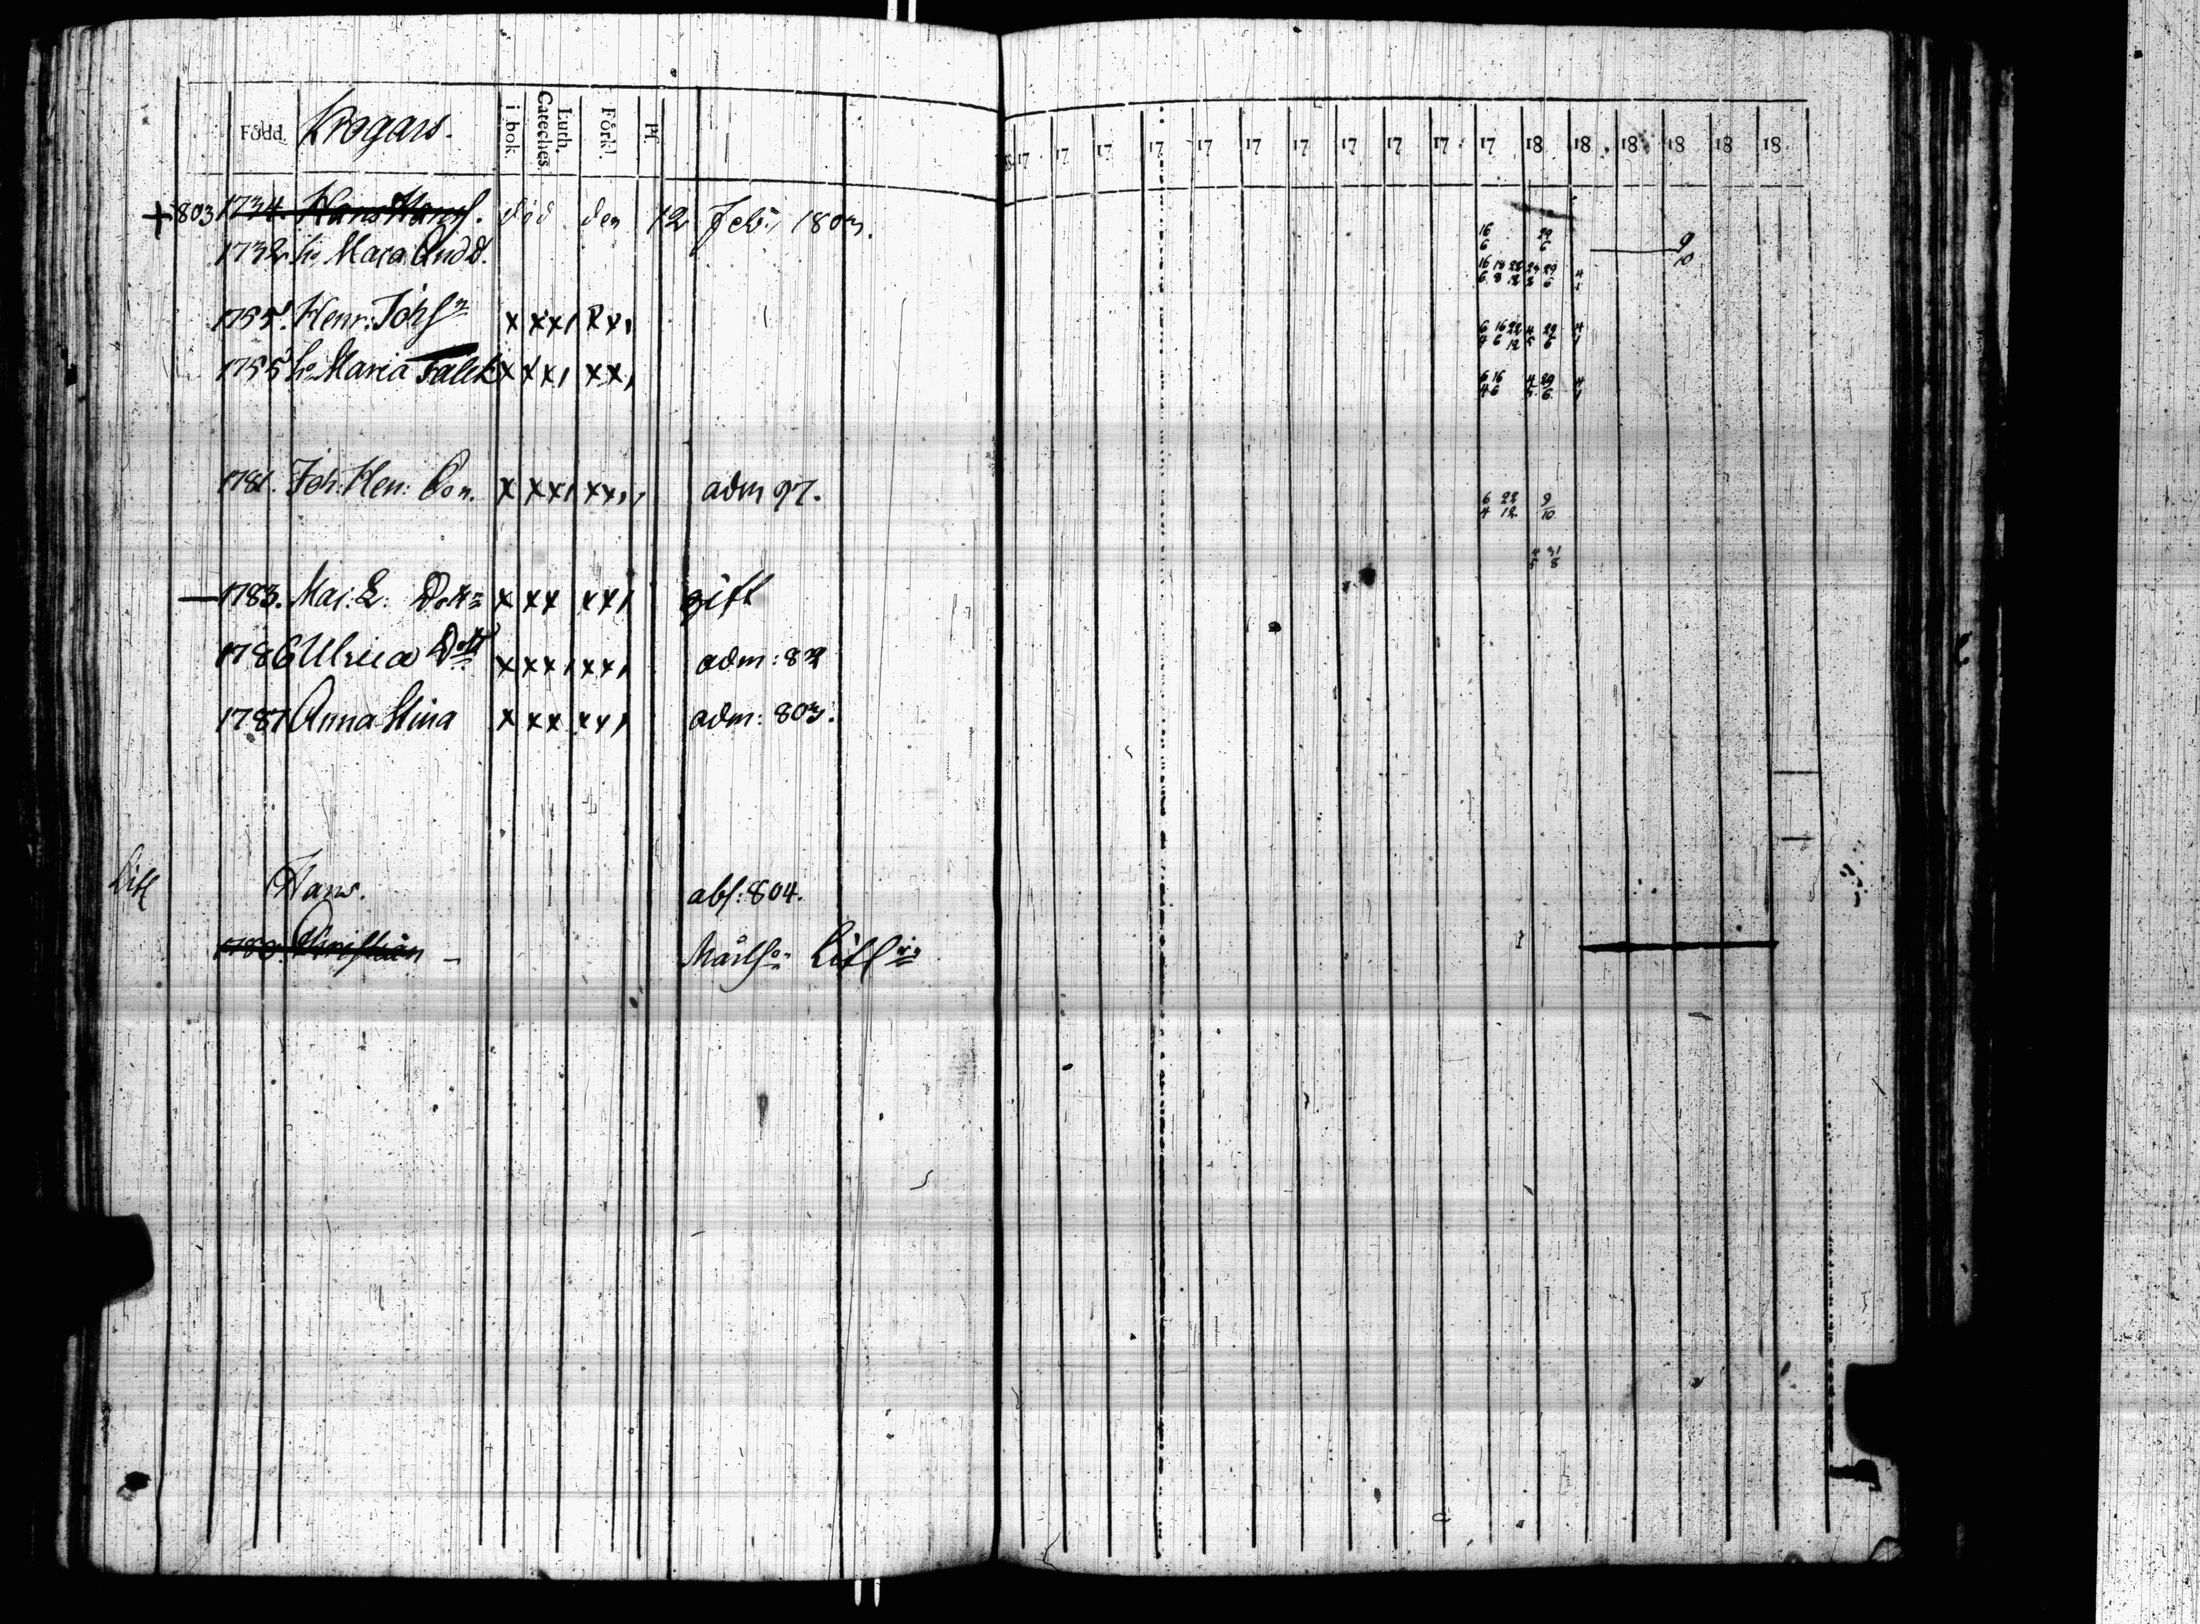 Född. Krogars. i bok. Luth. Cateches. Förkl. Pf. 17 17 17 17 17 17 17 17 17 17 17 18 18 18 18 18 18
+ 803 1734. Hans död den 12 Feb: 1803. 16/6 29/6
1732 h: Maria And.d. 16/6 18/8 22/12 29/6 4/1 9/10
1755. Henr: Johsn x xxx, xx, 6/4 16/6 22/12 4/5 29/6 4/1
1755 h: Maria Falck x xx, xx, 6/4 16/6 4/5 29/6 4/1
1781. Joh: Hen: Son. x xxx, xx,,, adm 97. 6/4 22/12 9/10
4/5 31/8
— 1783. Maj: L: Dott x xxx xx, gift
1786 Ulrica Dott x xxx, xx, adm: 82
1787 Anna Stina x xx xx, adm: 803.
Hans. abs: 804.
Christian –